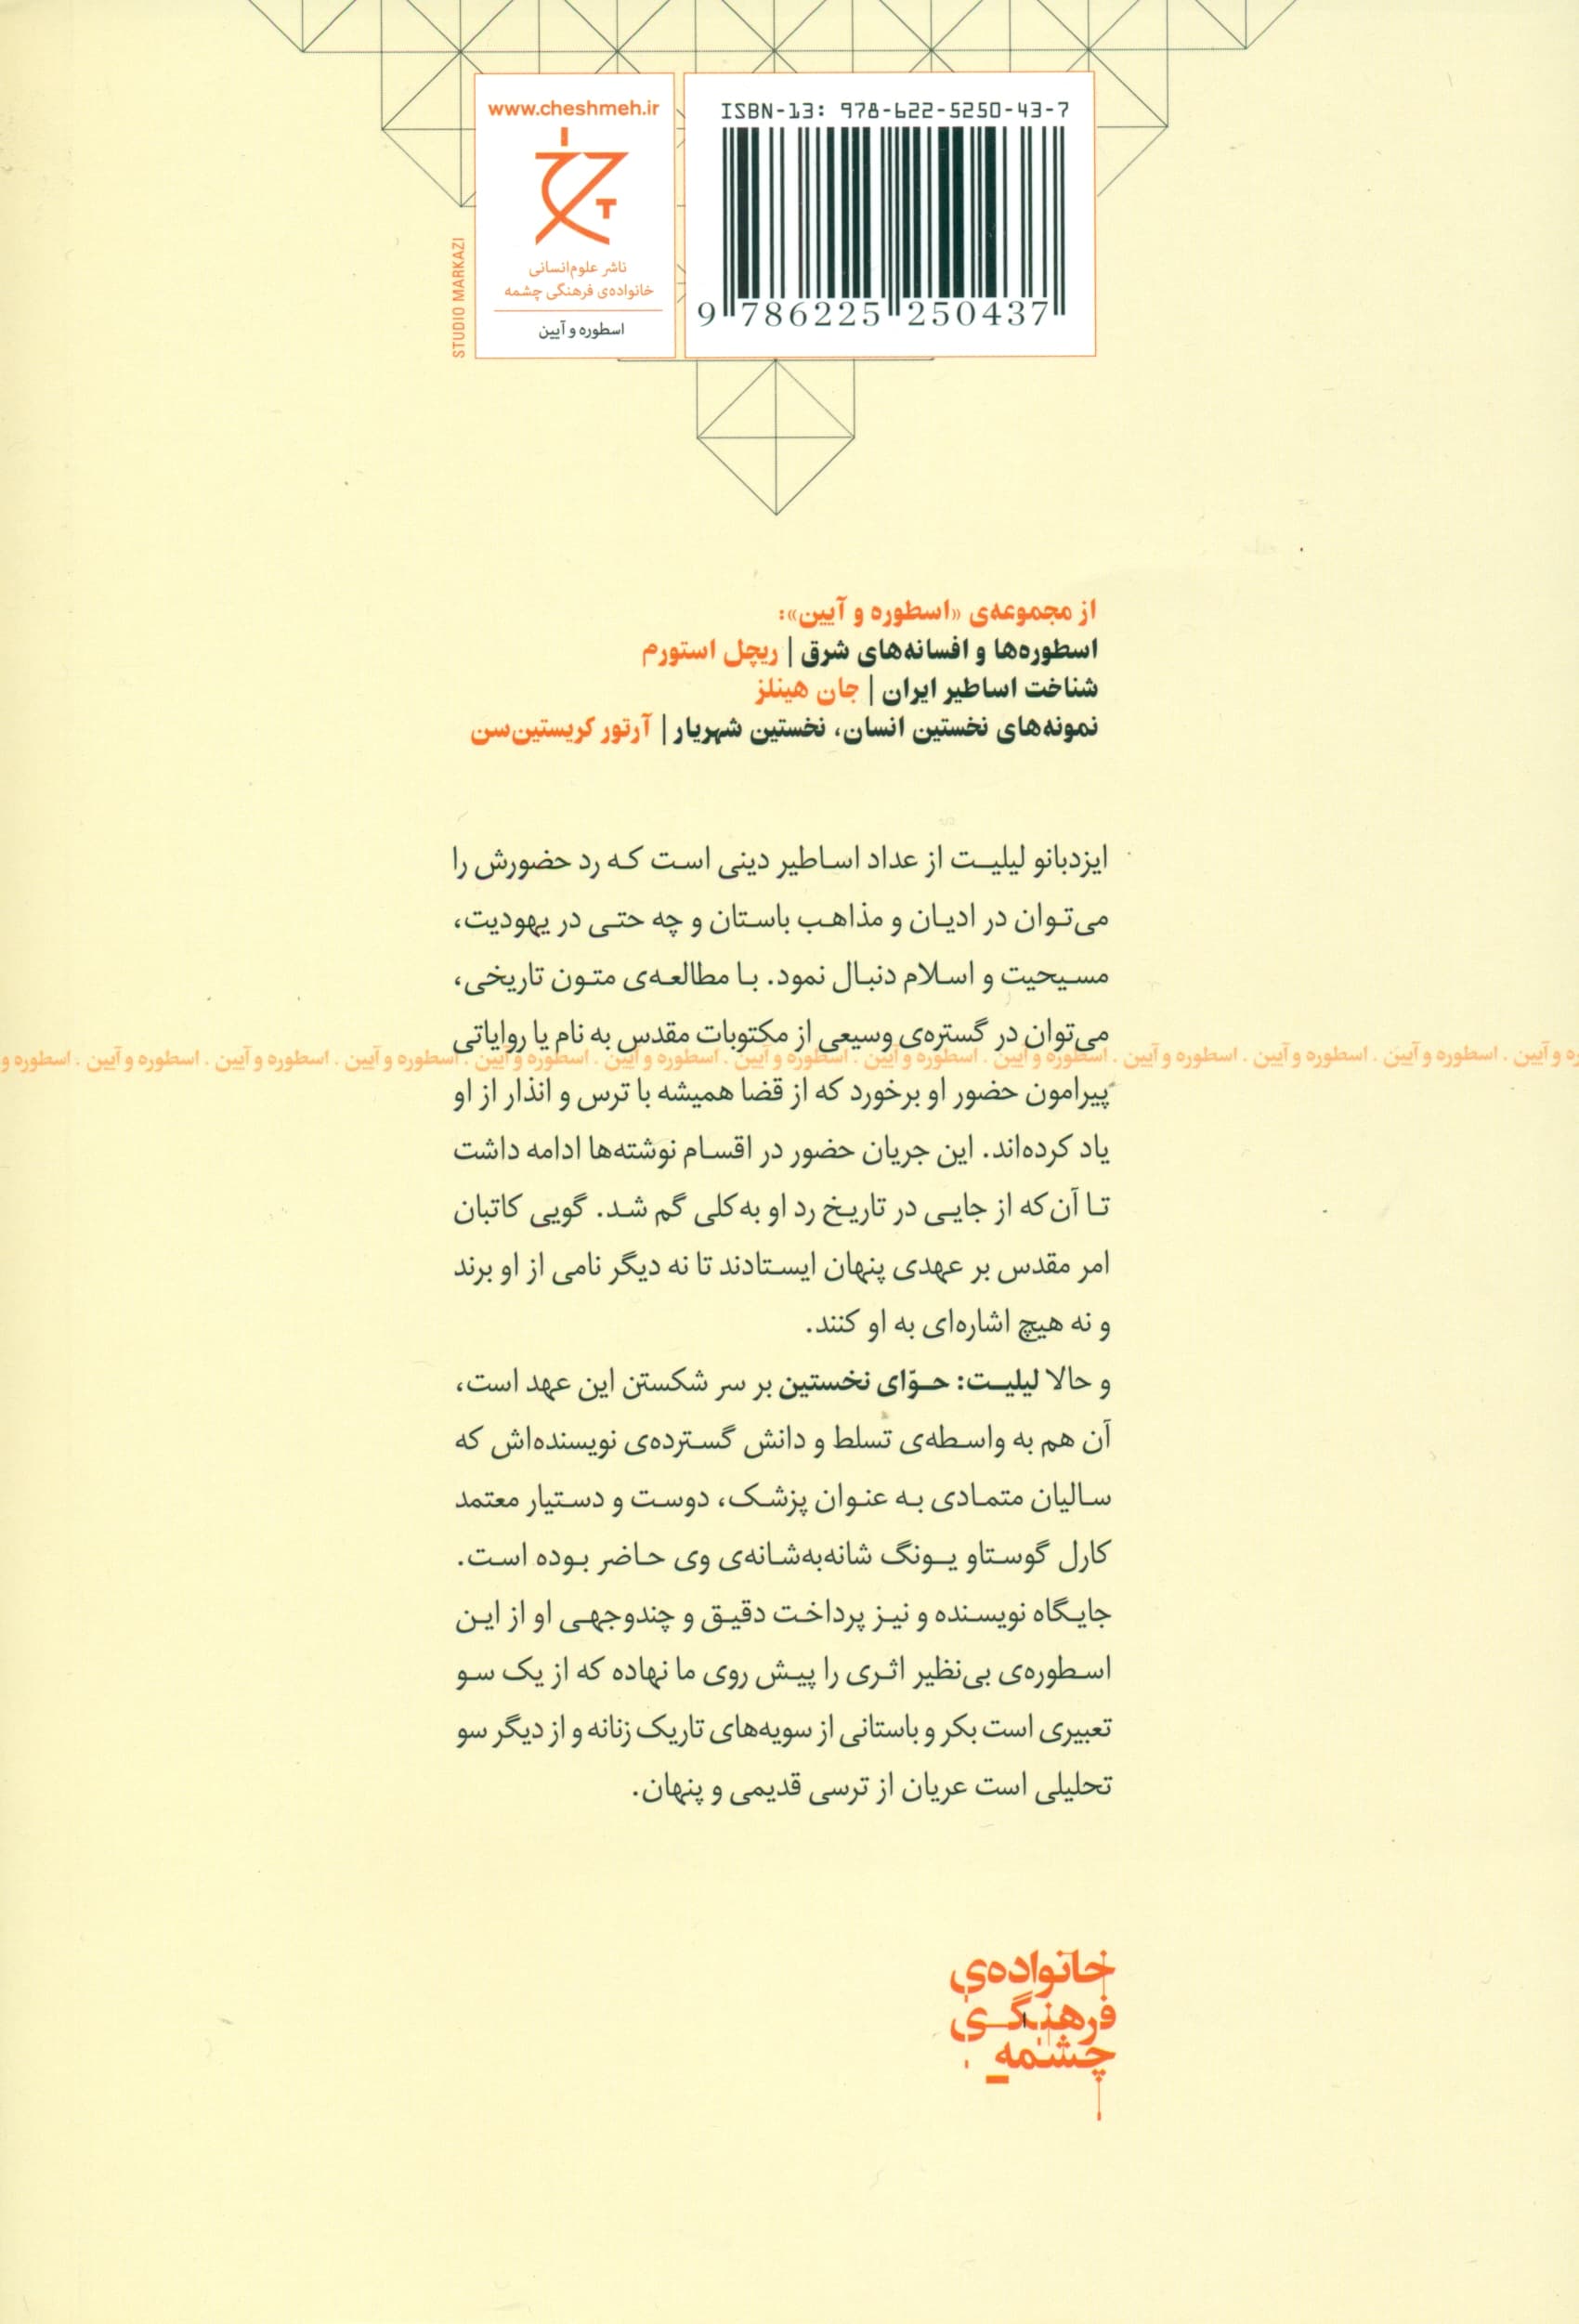 www.cheshmeh.ir
ناشر علوم‌انسانی
خانواده‌ی فرهنگی چشمه
اسطوره و آیین
STUDIO MARKAZI
ISBN-13: 978-622-5250-43-7
9 786225 250437
از مجموعه‌ی «اسطوره و آیین»:
اسطوره‌ها و افسانه‌های شرق | ریچل استورم
شناخت اساطیر ایران | جان هینلز
نمونه‌های نخستین انسان، نخستین شهریار | آرتور کریستین‌سن
ایزدبانو لیلیت از عداد اساطیر دینی است که رد حضورش را
می‌توان در ادیان و مذاهب باستان و چه حتی در یهودیت،
مسیحیت و اسلام دنبال نمود. با مطالعه‌ی متون تاریخی،
می‌توان در گستره‌ی وسیعی از مکتوبات مقدس به نام یا روایاتی
ه و آیین . اسطوره و آیین . اسطوره و آیین . اسطوره و آیین . اسطوره و آیین . اسطوره و آیین . اسطوره و آیین . اسطوره و آیین . اسطوره و آیین . اسطوره و آیین . اسطوره و آیین . اسطوره و آیین . اسطوره و
پیرامون حضور او برخورد که از قضا همیشه با ترس و انذار از او
یاد کرده‌اند. این جریان حضور در اقسام نوشته‌ها ادامه داشت
تا آن‌که از جایی در تاریخ رد او به‌کلی گم شد. گویی کاتبان
امر مقدس بر عهدی پنهان ایستادند تا نه دیگر نامی از او برند
و نه هیچ اشاره‌ای به او کنند.
و حالا لیلیت: حوّای نخستین بر سر شکستن این عهد است،
آن هم به واسطه‌ی تسلط و دانش گسترده‌ی نویسنده‌اش که
سالیان متمادی به عنوان پزشک، دوست و دستیار معتمد
کارل گوستاو یونگ شانه‌به‌شانه‌ی وی حاضر بوده است.
جایگاه نویسنده و نیز پرداخت دقیق و چندوجهی او از این
اسطوره‌ی بی‌نظیر اثری را پیش روی ما نهاده که از یک سو
تعبیری است بکر و باستانی از سویه‌های تاریک زنانه و از دیگر سو
تحلیلی است عریان از ترسی قدیمی و پنهان.
خانواده‌ی
فرهنگی
چشمه